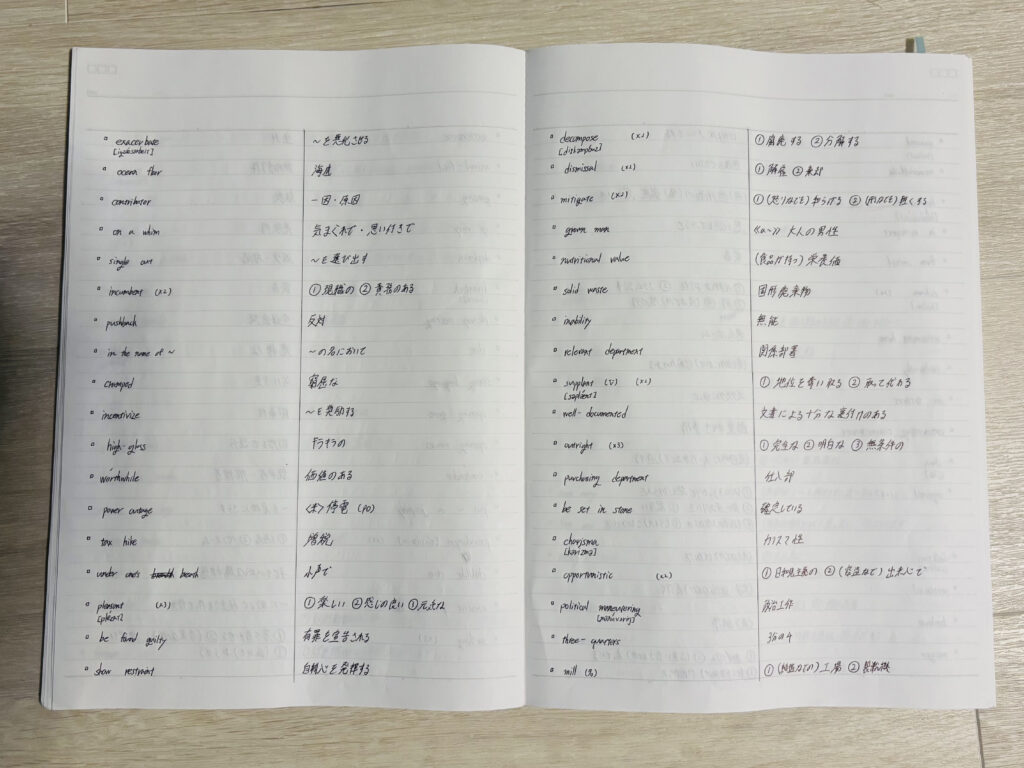 ▫ exacerbate ～を悪化させる
▫ ocean floor 海底
▫ contributor 一因・原因
▫ on a whim 気まぐれで・思い付きで
▫ single out ～を選び出す
▫ incumbent (×2) ①現職の ②責務のある
▫ pushback 反対
▫ in the name of ~ ～の名において
▫ cramped 窮屈な
▫ incentivize ～を奨励する
▫ high-gloss
▫ worthwhile 価値のある
▫ power outage <米>停電 (PO)
▫ tax hike 増税
▫ under one's breath 小声で
▫ pleasant (×3) ①楽しい ②感じの良い
▫ be found guilty 有罪を宣告される
▫ show restraint 自制心を発揮する
▫ decompose (×2) ①腐敗する ②分解する
▫ dismissal (×2) ①解雇 ②棄却
▫ mitigate (×2) ①(怒りなどを)和らげる ②(刑などを)軽くする
▫ grown man 《a ~》 大人の男性
▫ nutritional value (食品が持つ) 栄養価
▫ solid waste 固形廃棄物
▫ inability 無能
▫ relevant department 関係部署
▫ supplant (×2) ①地位を奪い取る ②取って代わる
▫ well-documented 文書による十分な裏付けのある
▫ outright (×3) ①完全な ②明白な ③無条件の
▫ purchasing department 仕入部
▫ be set in stone 確定している
▫ charisma カリスマ性
[karizma]
▫ opportunistic (×2) ①日和見主義の
▫ political maneuvering 政治工作
▫ three-quarters 3/4
▫ mill ①(製造などの)工場 ②製粉機